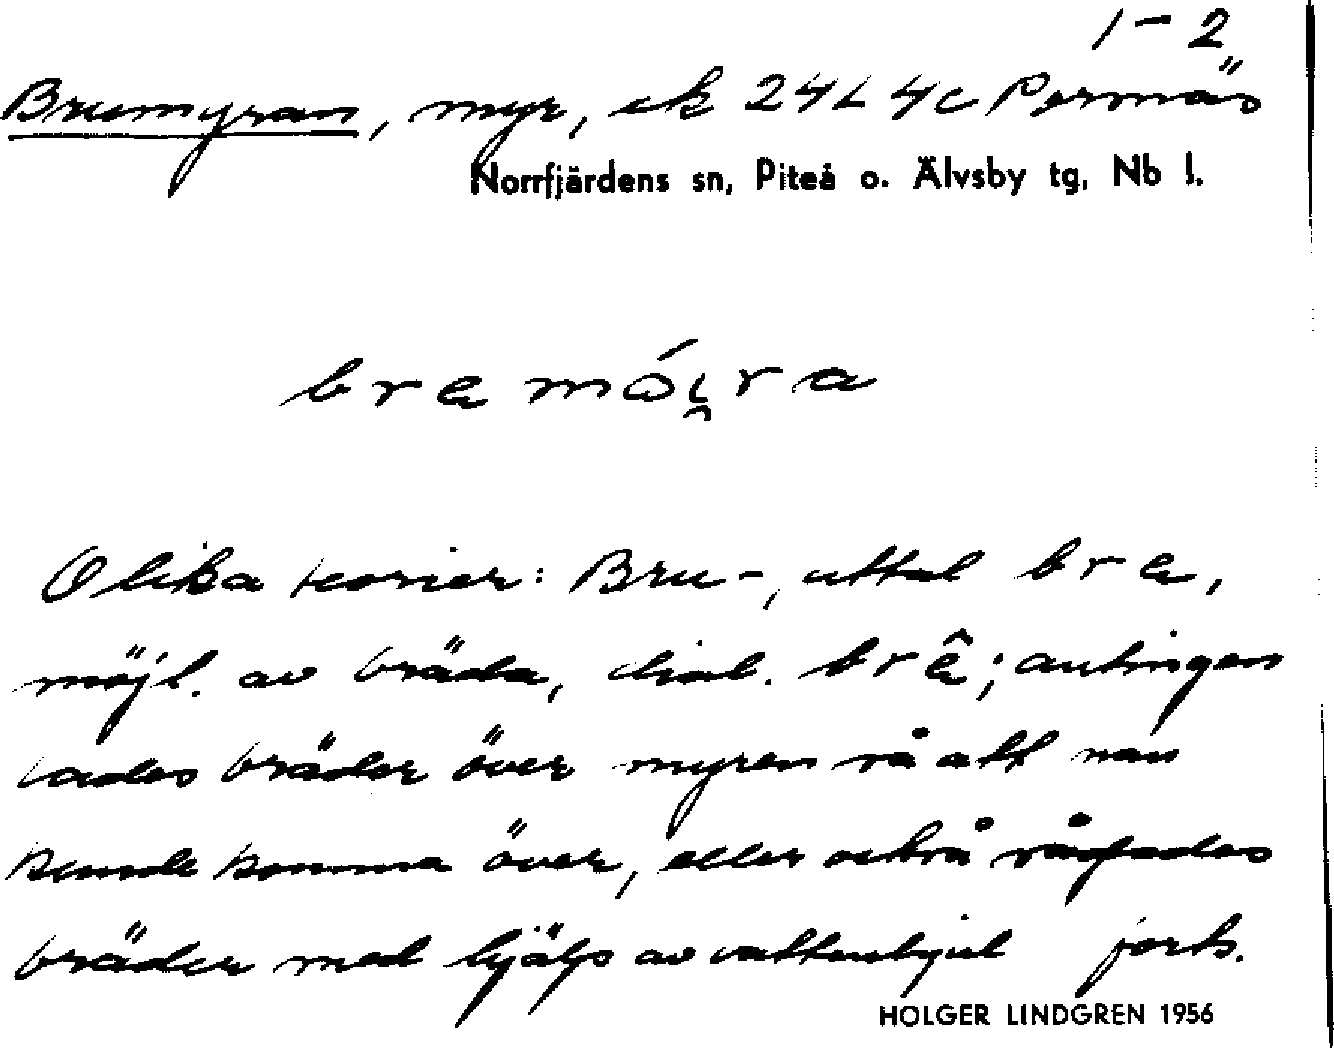 1-2
Brumyran, myr, ek 24L 4c Pernäs
Norrfjärdens sn, Piteå o. Älvsby tg, Nb l.
bre mói̯ra
Olika teorier: Bru-, uttal bre,
möjl. av bräda, dial. brê; antingen
lades bräder över myren så att man
kunde komma över, eller också sågades
bräder med hjälp av vattenhjul forts.
HOLGER LINDGREN 1956